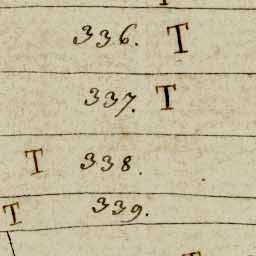 336. T
337. T
T 338.
T 339.